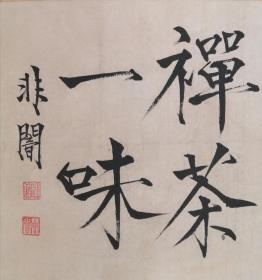 禪茶
一味
非闇